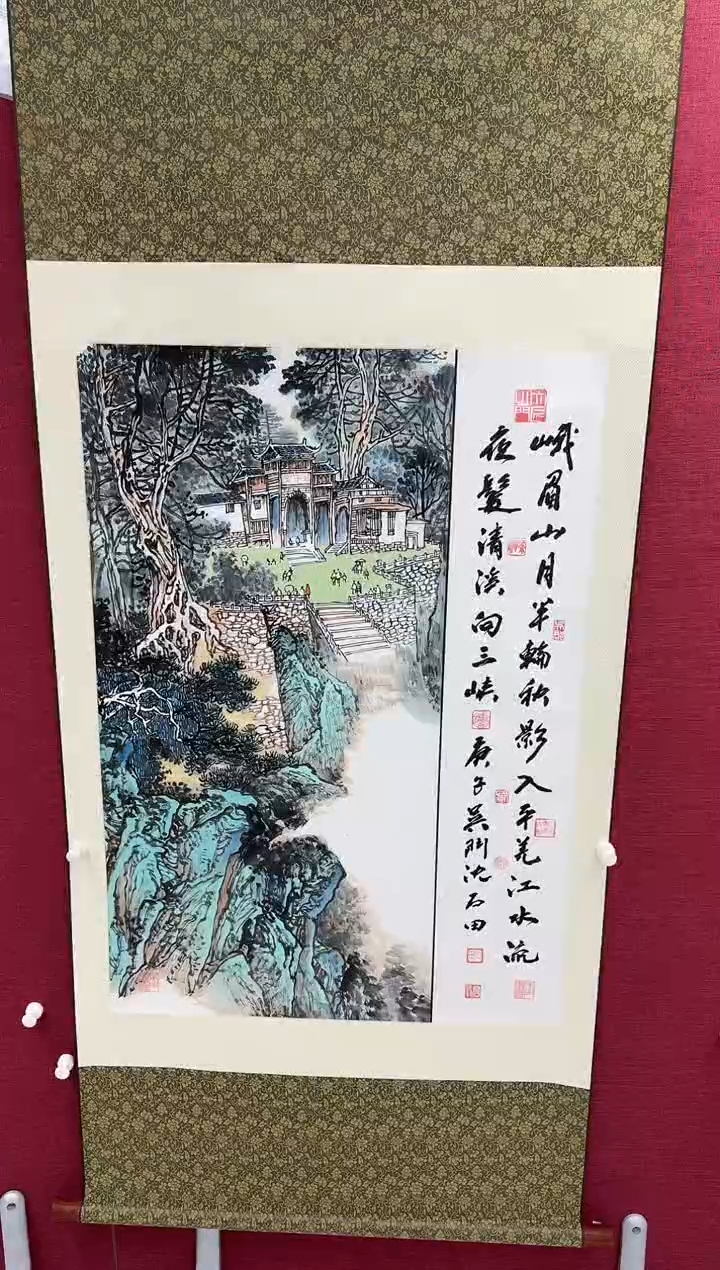 峨眉山月半輪秋影入平羌江水流
夜髮清溪向三峡
庚子吴門沈石田